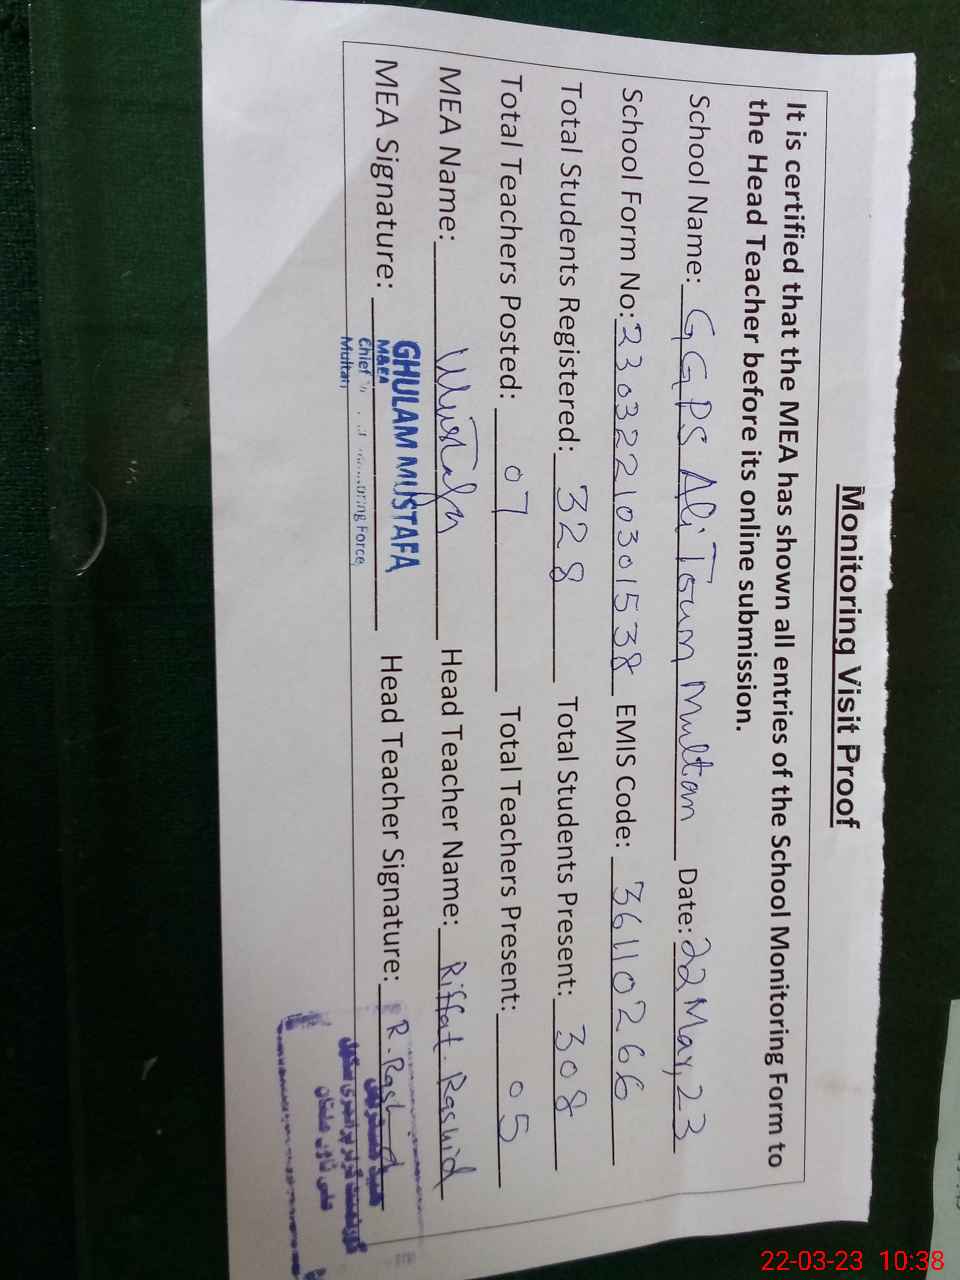 Monitoring Visit Proof
It is certified that the MEA has shown all entries of the School Monitoring Form to
the Head Teacher before its online submission.
School Name: GGPS Ali Town Multan Date: 22 Mar, 23
School Form No: 23032210301538 EMIS Code: 36110266
Total Students Registered: 328 Total Students Present: 308
Total Teachers Posted: 07 Total Teachers Present: 05
MEA Name: Mustafa Head Teacher Name: Riffat Rashid
MEA Signature: Head Teacher Signature: R. Rashid
GHULAM MUSTAFA
M&EA
Chief Monitoring Force
Multan
ہیڈ مسٹریس
گورنمنٹ گرلز پرائمری سکول
علی ٹاؤن ملتان
22-03-23 10:38